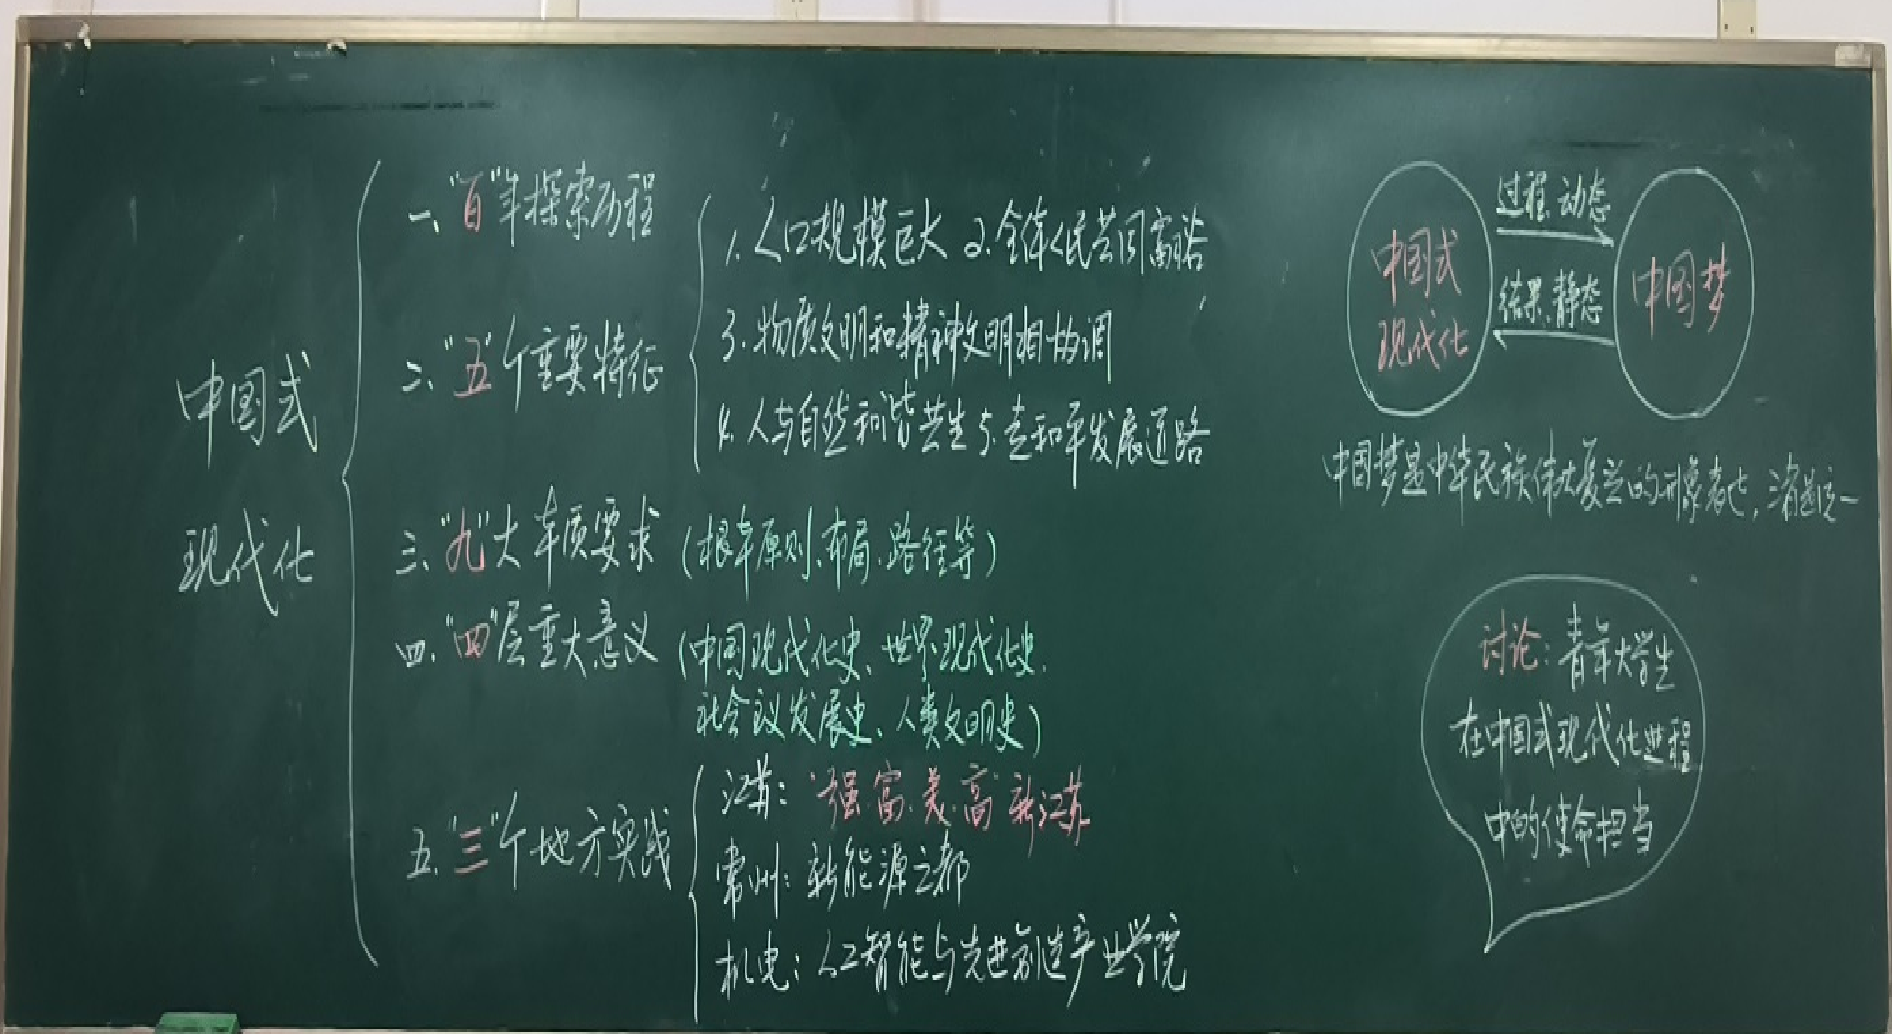 中国式
现代化
一、"百"年探索历程
二、"五"个重要特征
1.人口规模巨大 2.全体人民共同富裕
3.物质文明和精神文明相协调
4.人与自然和谐共生 5.走和平发展道路
三、"九"大本质要求(根本原则、布局、路径等)
四、"四"层重大意义(中国现代化史、世界现代化史、
社会主义发展史、人类文明史)
五、"三"个地方实践
江苏:"强、富、美、高"新江苏
常州:新能源之都
机电:人工智能与先进制造产业学院
中国式
现代化
过程、动态
结果、静态
中国梦
中国梦是中华民族伟大复兴的形象表达,
讨论:青年大学生
在中国式现代化进程
中的使命担当